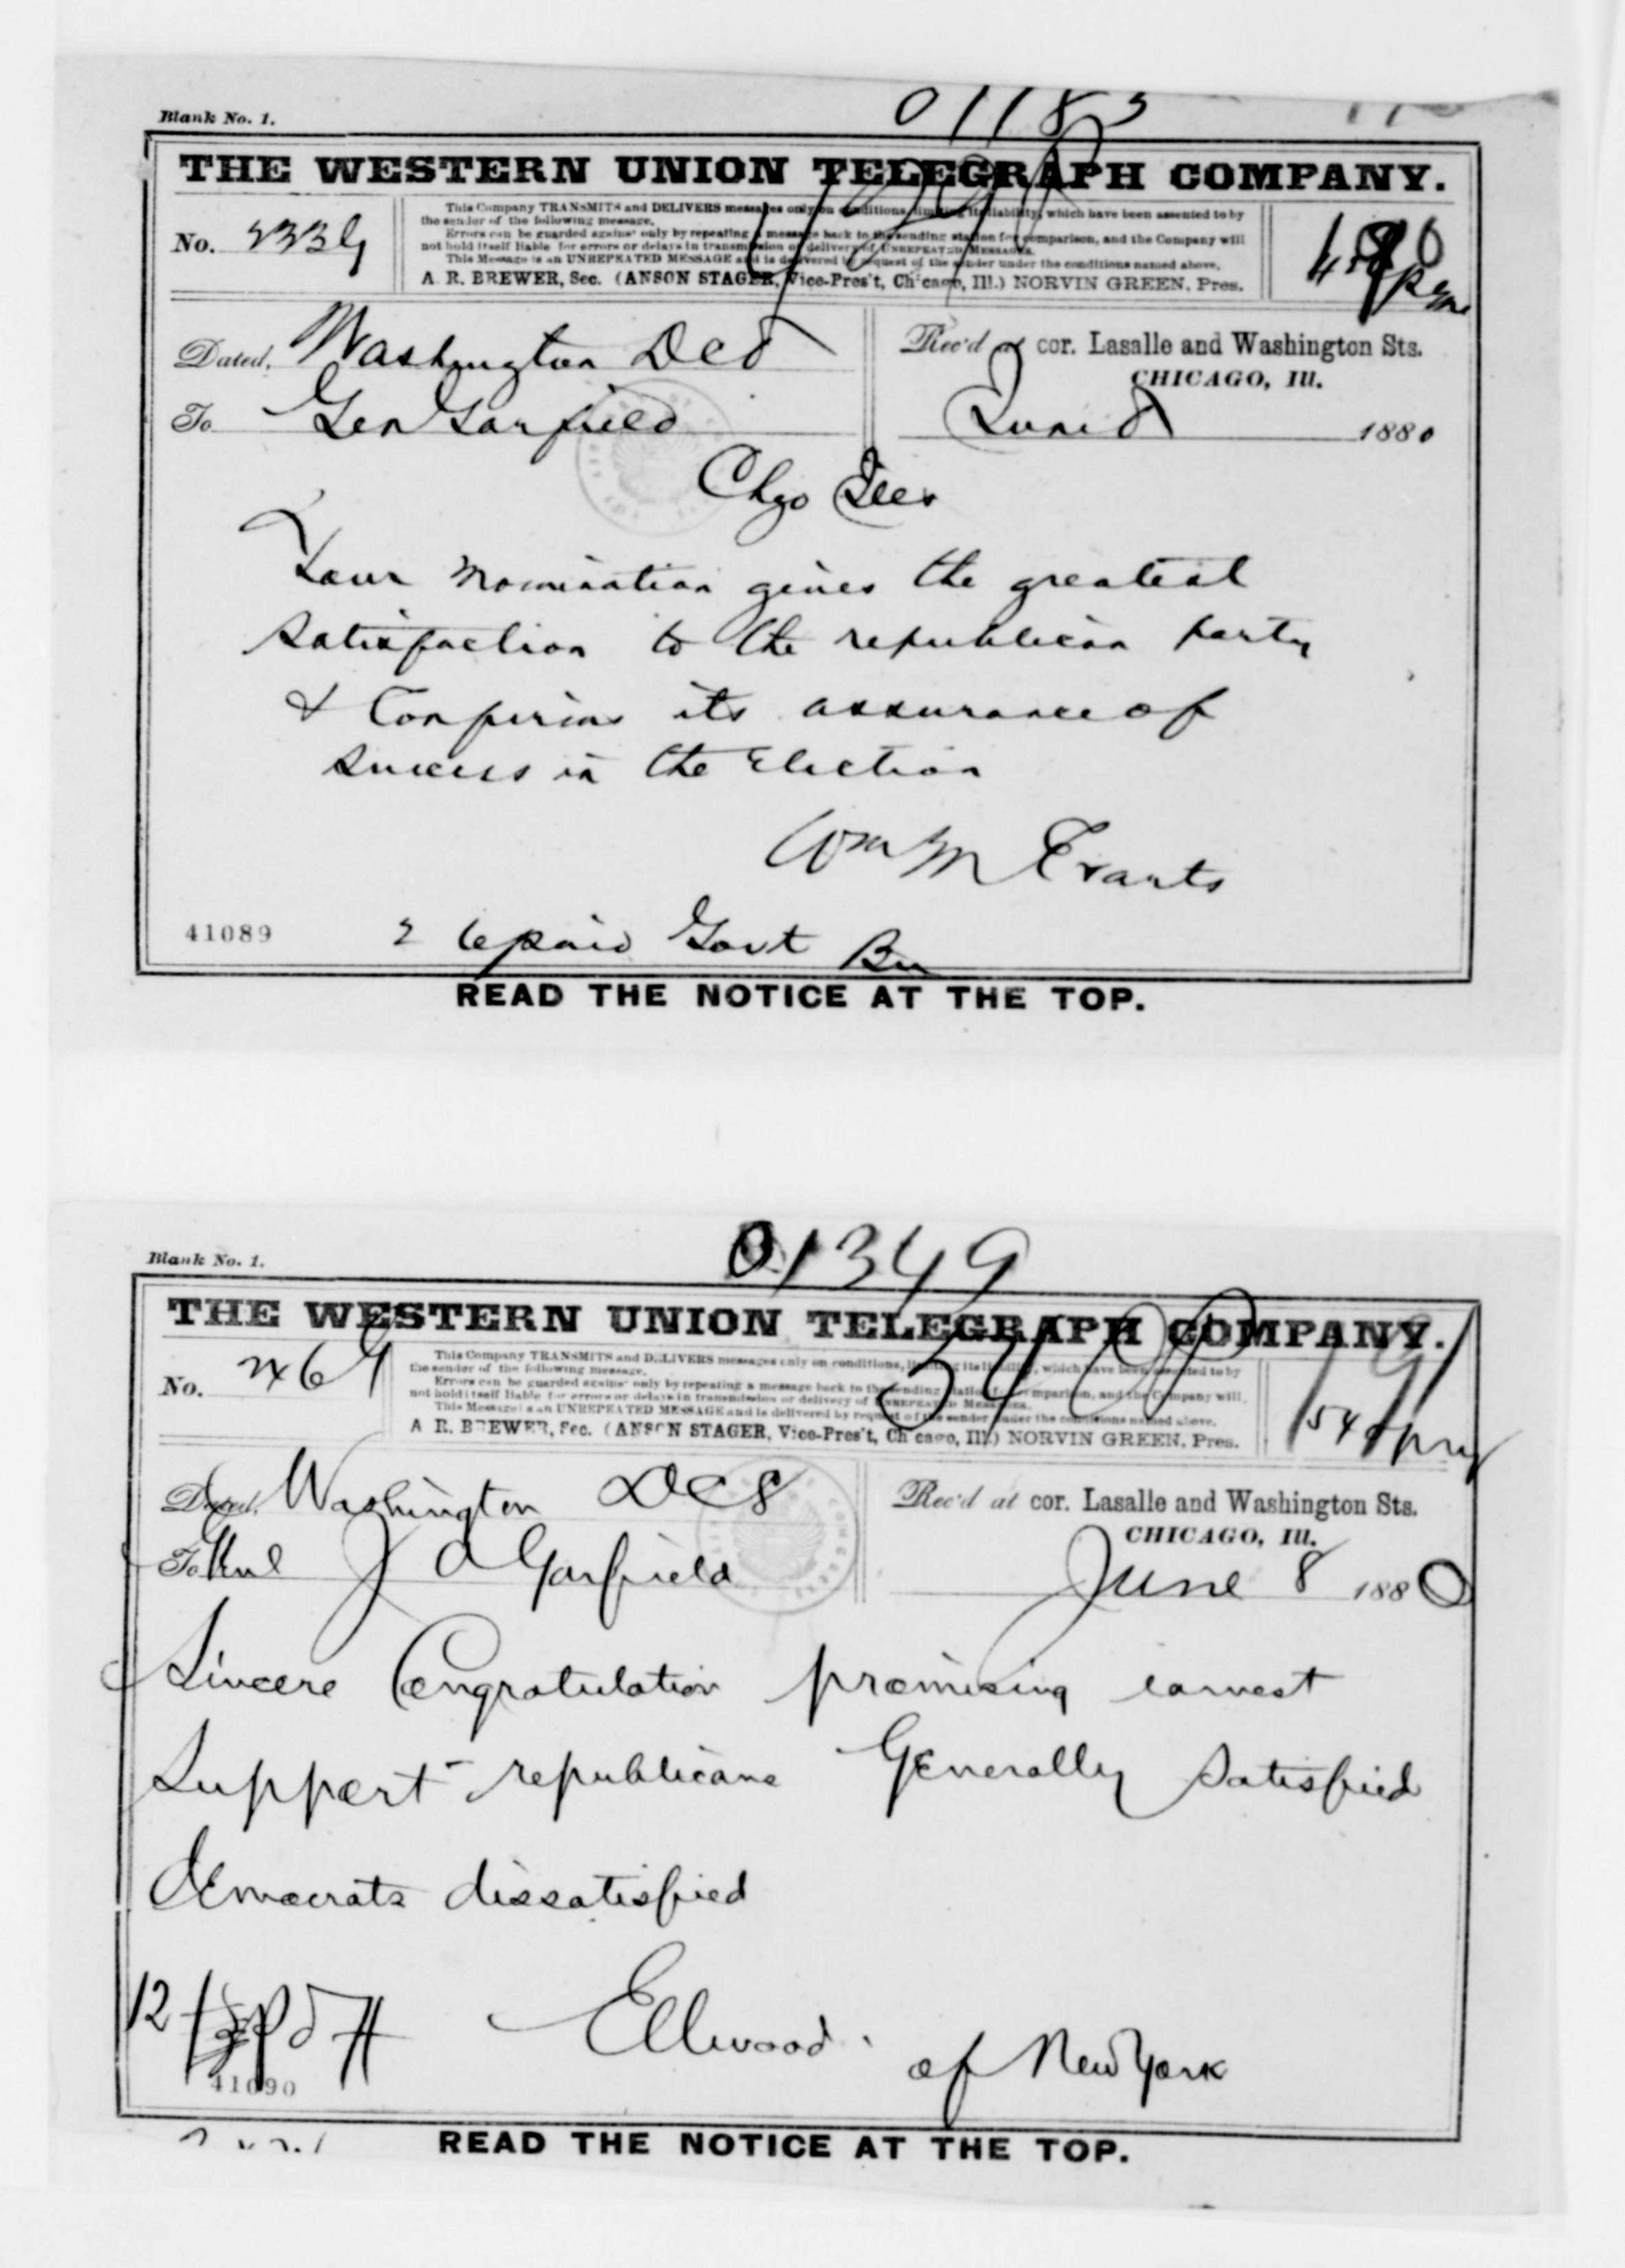 01183
Blank No. 1.
THE WESTERN UNION TELEGRAPH COMPANY.
No.
This Company TRANSMITS and DELIVERS messages only on conditions, limiting its liability, which have been assented to by
the sender of the following message.
Errors can be guarded against only by repeating a message back to the sending station for comparison, and the Company will
not hold itself liable for errors or delays in transmission or delivery of UNREPEATED MESSAGES.
This Message is an UNREPEATED MESSAGE and is delivered by request of the sender under the conditions named above.
A. R. BREWER, Sec. (ANSON STAGER, Vice-Pres't, Chicago, Ill.) NORVIN GREEN, Pres.
Dated, Washington DC 8
Rec'd at cor. Lasalle and Washington Sts.
CHICAGO, Ill.
To Gen Garfield
June 8 1880
Chgo Ills
Your Nomination gives the greatest
satisfaction to the republican party
& Confirms its assurance of
success in the Election
Wm M Evarts
41089
paid Govt
READ THE NOTICE AT THE TOP.
01349
Blank No. 1.
THE WESTERN UNION TELEGRAPH COMPANY.
No.
This Company TRANSMITS and DELIVERS messages only on conditions, limiting its liability, which have been assented to by
the sender of the following message.
Errors can be guarded against only by repeating a message back to the sending station for comparison, and the Company will
not hold itself liable for errors or delays in transmission or delivery of UNREPEATED MESSAGES.
This Message is an UNREPEATED MESSAGE and is delivered by request of the sender under the conditions named above.
A. R. BREWER, Sec. (ANSON STAGER, Vice-Pres't, Chicago, Ill.) NORVIN GREEN, Pres.
Dated, Washington DC 8
Rec'd at cor. Lasalle and Washington Sts.
CHICAGO, Ill.
To Genl J A Garfield
June 8 1880
Sincere Congratulation promising earnest
Support - republicans Generally satisfied
democrats dissatisfied
12
Ellwood
of New York
41090
READ THE NOTICE AT THE TOP.